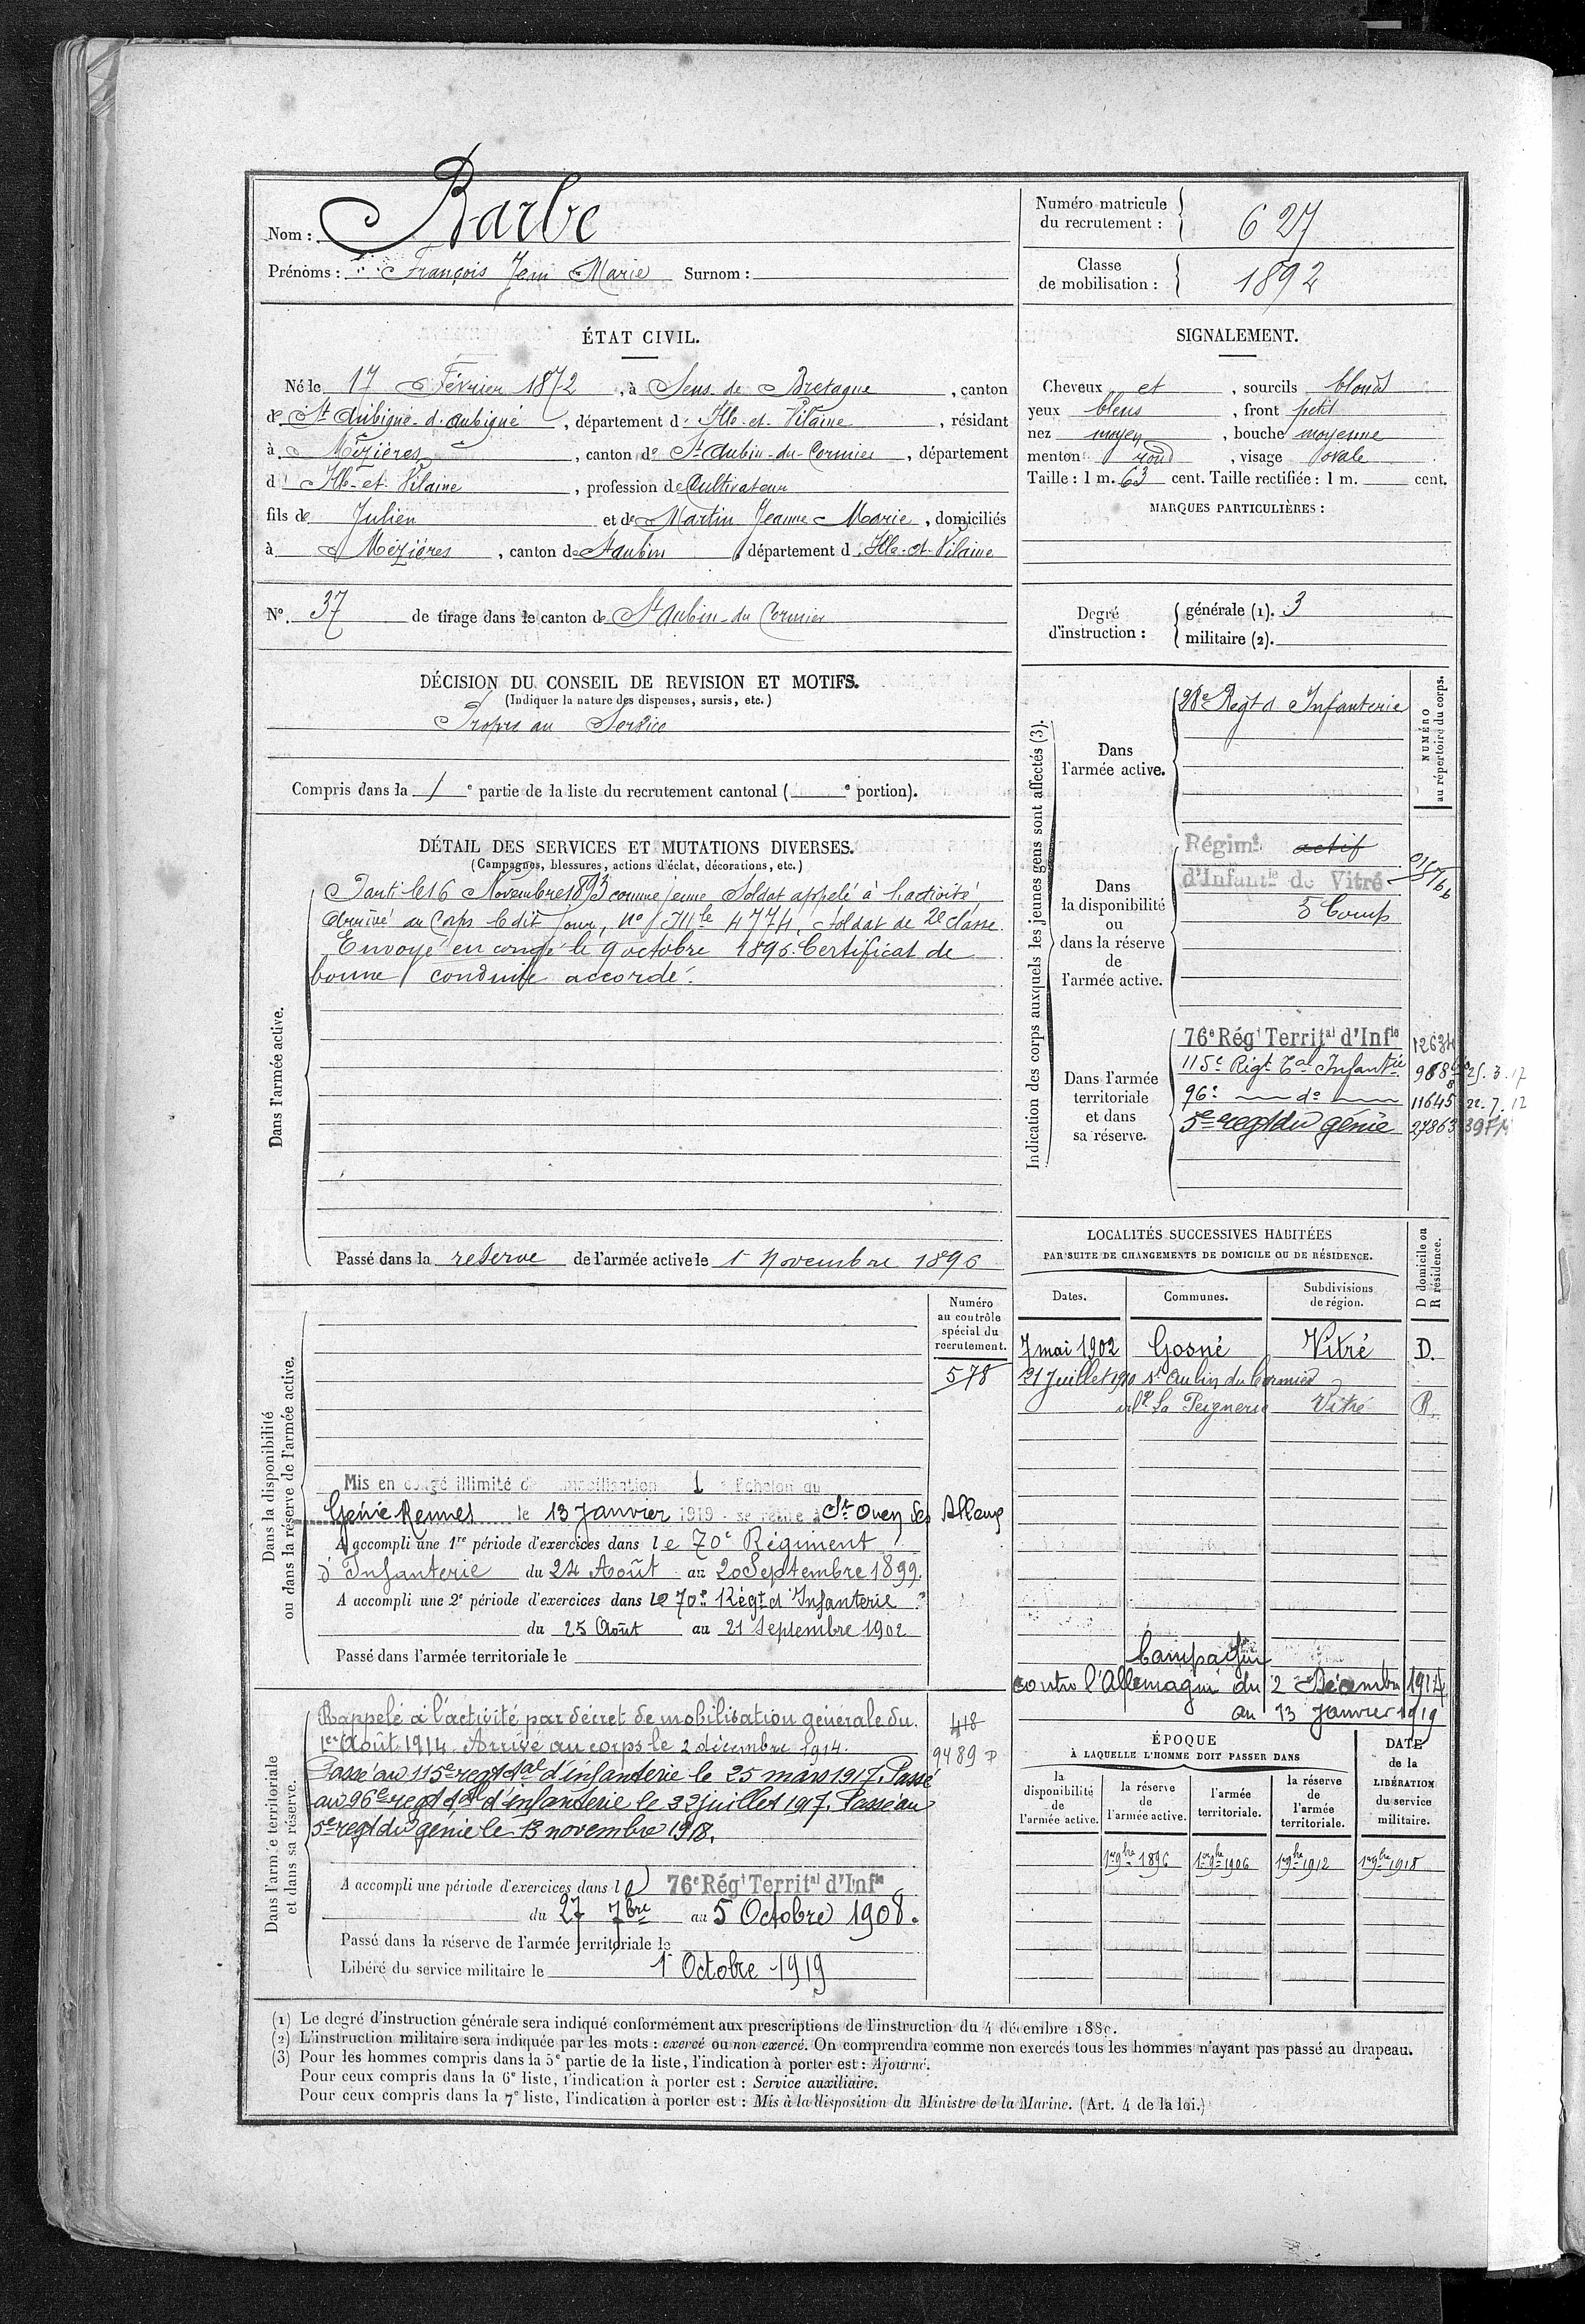 Nom : Barbe
Prénoms : François Jean Marie Surnom :
Numéro matricule
du recrutement : 627
Classe
de mobilisation : 1892
ÉTAT CIVIL.
Né le 17 Février 1872, à Sens de Bretagne, canton
de St Aubigne d'aubigné, département d' Ille-et-Vilaine, résidant
à Mézières, canton de St Aubin-du-Cormier, département
d' Ille-et-Vilaine, profession de Cultivateur
fils de Julien et de Martin Jeanne Marie, domiciliés
à Mézières, canton de St aubin département d Ille-et-Vilaine
No. 37 de tirage dans le canton de St Aubin-du Cormier
SIGNALEMENT.
Cheveux et, sourcils blonds
yeux bleus, front petit
nez moyen, bouche moyenne
menton rond, visage ovale
Taille : 1 m. 63 cent. Taille rectifiée : 1 m. cent.
MARQUES PARTICULIÈRES :
Degré
d'instruction :
générale (1). 3
militaire (2).
DÉCISION DU CONSEIL DE REVISION ET MOTIFS.
(Indiquer la nature des dispenses, sursis, etc.)
Propre au Service
Compris dans la 1 e partie de la liste du recrutement cantonal ( e portion).
DÉTAIL DES SERVICES ET MUTATIONS DIVERSES.
(Campagnes, blessures, actions d'éclat, décorations, etc.)
Dans l'armée active.
Parti le 16 Novembre 1893 comme jeune Soldat appelé à l'activité
Arrivé au Corps le dit jour, No Mle 4774. Soldat de 2e classe.
Envoyé en congé le 9 octobre 1896. Certificat de
bonne conduite accordé.
Passé dans la reserve de l'armée active le 1er Novembre 1896
Indication des corps auxquels les jeunes gens sont affectés (3).
NUMÉRO
au répertoire du corps.
Dans
l'armée active.
28e Regt d Infanterie
Dans
la disponibilité
ou
dans la réserve
de
l'armée active.
Régimt actif
d'Infantie de Vitré
5 Comp
Dans l'armée
territoriale
et dans
sa réserve.
76e Régt Territal d'Infie
115e Régt Tal Infantie
96e do 11645 22.7.17
5e regt du génie 27863
LOCALITÉS SUCCESSIVES HABITÉES
PAR SUITE DE CHANGEMENTS DE DOMICILE OU DE RÉSIDENCE.
Dates. Communes. Subdivisions
de région.
D domicile ou
R résidence.
7 mai 1902 Gosné Vitré D.
21 Juillet 1910 St Aubin du Cormier
La Peignerie Vitré R.
Campagne
contre l'Allemagne du 2 Décembre 1914
au 13 janvier 1919
Dans la disponibilité
ou dans la réserve de l'armée active.
Numéro
au contrôle
spécial du
recrutement.
578
Mis en congé illimité de démobilisation 1 Echelon du
Génie Rennes le 13 Janvier 1919 se retire à St Ouen des Alleux
A accompli une 1re période d'exercices dans le 70e Régiment
d'Infanterie du 24 Août au 20 Septembre 1899.
A accompli une 2e période d'exercices dans le 70e Régt d'Infanterie
du 25 Août au 21 Septembre 1902
Passé dans l'armée territoriale le
Dans l'armée territoriale
et dans sa réserve.
Rappelé à l'activité par décret de mobilisation générale du
1er Août 1914. Arrivé au corps le 2 décembre 1914.
Passé au 115e regt tal d'infanterie le 25 mars 1917. Passé
au 96e regt tal d'infanterie le 22 juillet 1917. Passé au
5e regt du génie le 13 novembre 1918.
418
9489 P
A accompli une période d'exercices dans le 76e Régt Territal d'Infie
du 27 7bre au 5 Octobre 1908.
Passé dans la réserve de l'armée territoriale le
Libéré du service militaire le 1er Octobre 1919
ÉPOQUE
À LAQUELLE L'HOMME DOIT PASSER DANS
la
disponibilité
de
l'armée active.
la réserve
de
l'armée active.
l'armée
territoriale.
la réserve
de
l'armée
territoriale.
DATE
de la
LIBÉRATION
du service
militaire.
1er 9bre 1896 1er 9bre 1906 1er 9bre 1912 1er 9bre 1918
(1) Le degré d'instruction générale sera indiqué conformément aux prescriptions de l'instruction du 4 décembre 1889.
(2) L'instruction militaire sera indiquée par les mots : exercé ou non exercé. On comprendra comme non exercés tous les hommes n'ayant pas passé au drapeau.
(3) Pour les hommes compris dans la 5e partie de la liste, l'indication à porter est : Ajourné.
Pour ceux compris dans la 6e liste, l'indication à porter est : Service auxiliaire.
Pour ceux compris dans la 7e liste, l'indication à porter est : Mis à la disposition du Ministre de la Marine. (Art. 4 de la loi.)